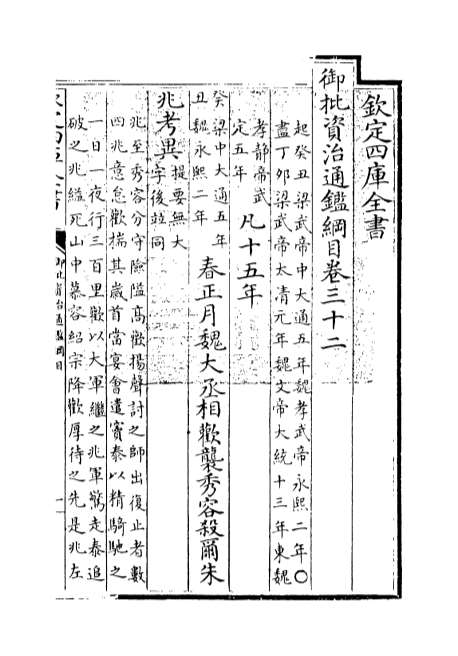 欽定四庫全書
御批資治通鑑綱目卷三十二
起癸丑梁武帝中大通五年魏孝武帝永熙二年〇
盡丁夘梁武帝太清元年魏文帝大統十三年東魏
孝静帝武
定五年
凡十五年
癸梁中大通五年
丑魏永熙二年
春正月魏大丞相歡襲秀容殺爾朱
兆考異
提要無大
字後並同
兆至秀容分守險隘髙歡揚聲討之師出復止者數
四兆意怠歡揣其歲首當宴會遣竇泰以精騎馳之
一日一夜行三百里歡以大軍繼之兆軍驚走泰追
破之兆縊死山中慕容紹宗降歡厚待之先是兆左
御批資治通鑑綱目
一